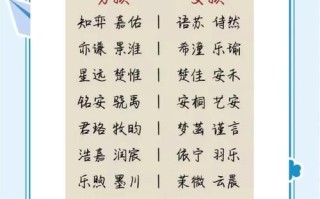 知弈 嘉佑 | 语苏 诗然
亦谦 景淮 | 希潼 乐瑜
星远 楚惟 | 楚佳 安禾
铭安 骁禹 | 安桐 艺安
君珞 牧昀 | 梦茵 谨言
浩嘉 润宸 | 依宁 羽乐
乐煦 墨川 | 茉微 云晨